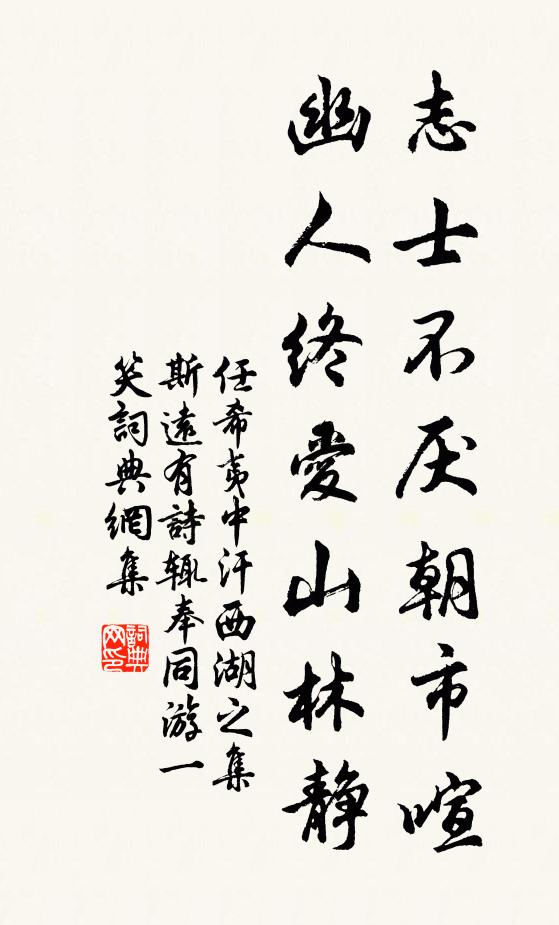 志士不厌朝市喧
幽人终爱山林静
任希夷中汗西湖之集
斯遠有詩辄奉同游一
笑詞典網集
詞典
网印